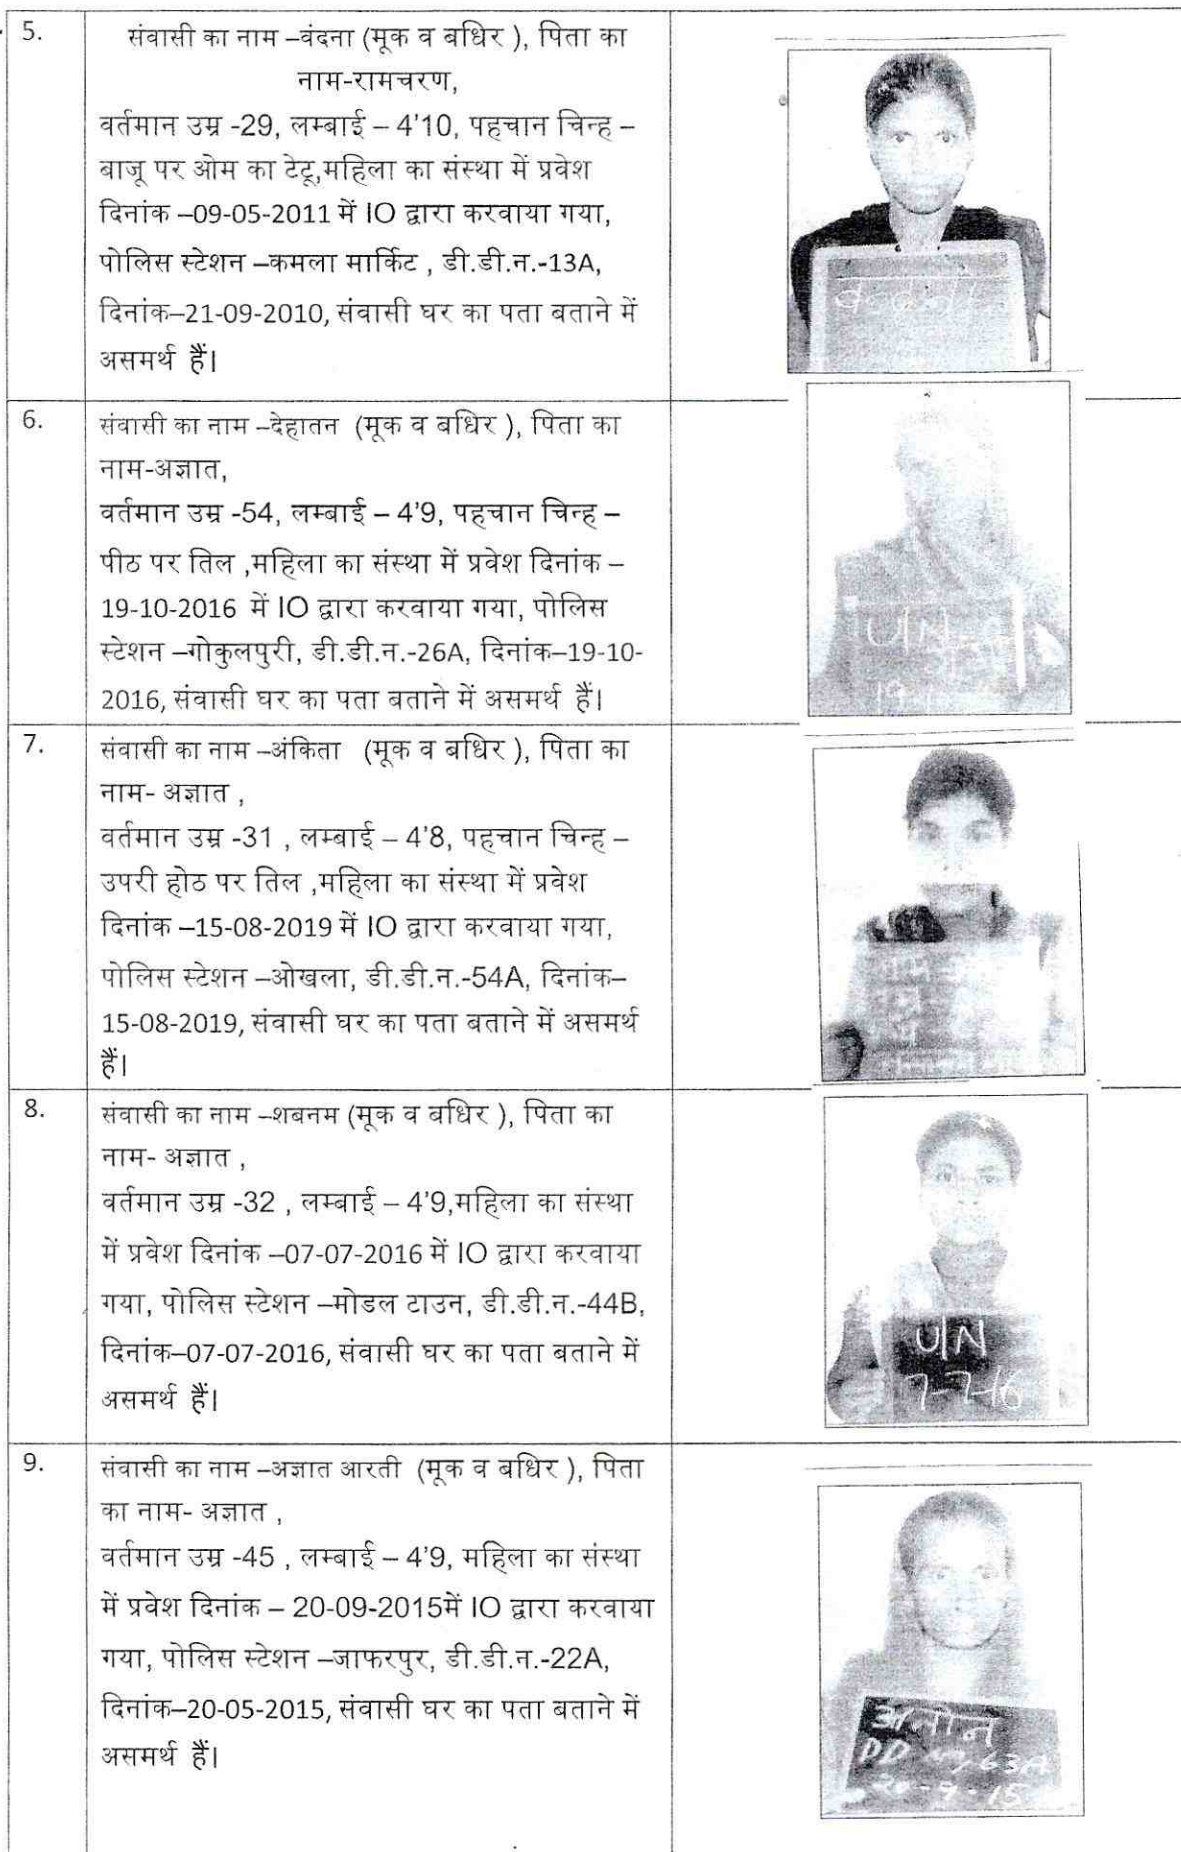 5.
संवासी का नाम –वंदना (मूक व बधिर ), पिता का
नाम-रामचरण,
वर्तमान उम्र -29, लम्बाई – 4'10, पहचान चिन्ह –
बाजू पर ओम का टेटू,महिला का संस्था में प्रवेश
दिनांक –09-05-2011 में IO द्वारा करवाया गया,
पोलिस स्टेशन –कमला मार्किट , डी.डी.न.-13A,
दिनांक–21-09-2010, संवासी घर का पता बताने में
असमर्थ हैं।
वन्दना
6.
संवासी का नाम –देहातन (मूक व बधिर ), पिता का
नाम-अज्ञात,
वर्तमान उम्र -54, लम्बाई – 4'9, पहचान चिन्ह –
पीठ पर तिल ,महिला का संस्था में प्रवेश दिनांक –
19-10-2016 में IO द्वारा करवाया गया, पोलिस
स्टेशन –गोकुलपुरी, डी.डी.न.-26A, दिनांक–19-10-
2016, संवासी घर का पता बताने में असमर्थ हैं।
U/N
7.
संवासी का नाम –अंकिता (मूक व बधिर ), पिता का
नाम- अज्ञात ,
वर्तमान उम्र -31 , लम्बाई – 4'8, पहचान चिन्ह –
उपरी होठ पर तिल ,महिला का संस्था में प्रवेश
दिनांक –15-08-2019 में IO द्वारा करवाया गया,
पोलिस स्टेशन –ओखला, डी.डी.न.-54A, दिनांक–
15-08-2019, संवासी घर का पता बताने में असमर्थ
हैं।
नाम
8.
संवासी का नाम –शबनम (मूक व बधिर ), पिता का
नाम- अज्ञात ,
वर्तमान उम्र -32 , लम्बाई – 4'9,महिला का संस्था
में प्रवेश दिनांक –07-07-2016 में IO द्वारा करवाया
गया, पोलिस स्टेशन –मोडल टाउन, डी.डी.न.-44B,
दिनांक–07-07-2016, संवासी घर का पता बताने में
असमर्थ हैं।
U/N
7-7-16
9.
संवासी का नाम –अज्ञात आरती (मूक व बधिर ), पिता
का नाम- अज्ञात ,
वर्तमान उम्र -45 , लम्बाई – 4'9, महिला का संस्था
में प्रवेश दिनांक – 20-09-2015में IO द्वारा करवाया
गया, पोलिस स्टेशन –जाफरपुर, डी.डी.न.-22A,
दिनांक–20-05-2015, संवासी घर का पता बताने में
असमर्थ हैं।
DD 63A
20-9-15